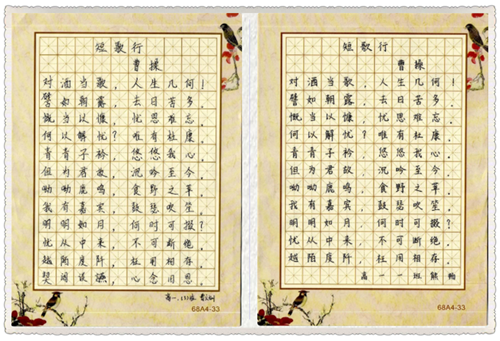 短歌行
曹操
对酒当歌，人生几何！
譬如朝露，去日苦多．
慨当以慷，忧思难忘．
何以解忧？唯有杜康．
青青子衿，悠悠我心．
但为君故，沉吟至今．
呦呦鹿鸣，食野之苹．
我有嘉宾，鼓瑟吹笙．
明明如月，何时可掇？
忧从中来，不可断绝．
越陌度阡，枉用相存．
契阔谈讌，心念旧恩．
高一．
68A4-33
短歌行
曹操
对酒当歌，人生几何！
譬如朝露，去日苦多．
慨当以慷，忧思难忘．
何以解忧？唯有杜康．
青青子衿，悠悠我心．
但为君故，沉吟至今．
呦呦鹿鸣，食野之苹．
我有嘉宾，鼓瑟吹笙．
明明如月，何时可掇？
忧从中来，不可断绝．
越陌度阡，枉用相存．
高一一班熊
68A4-33